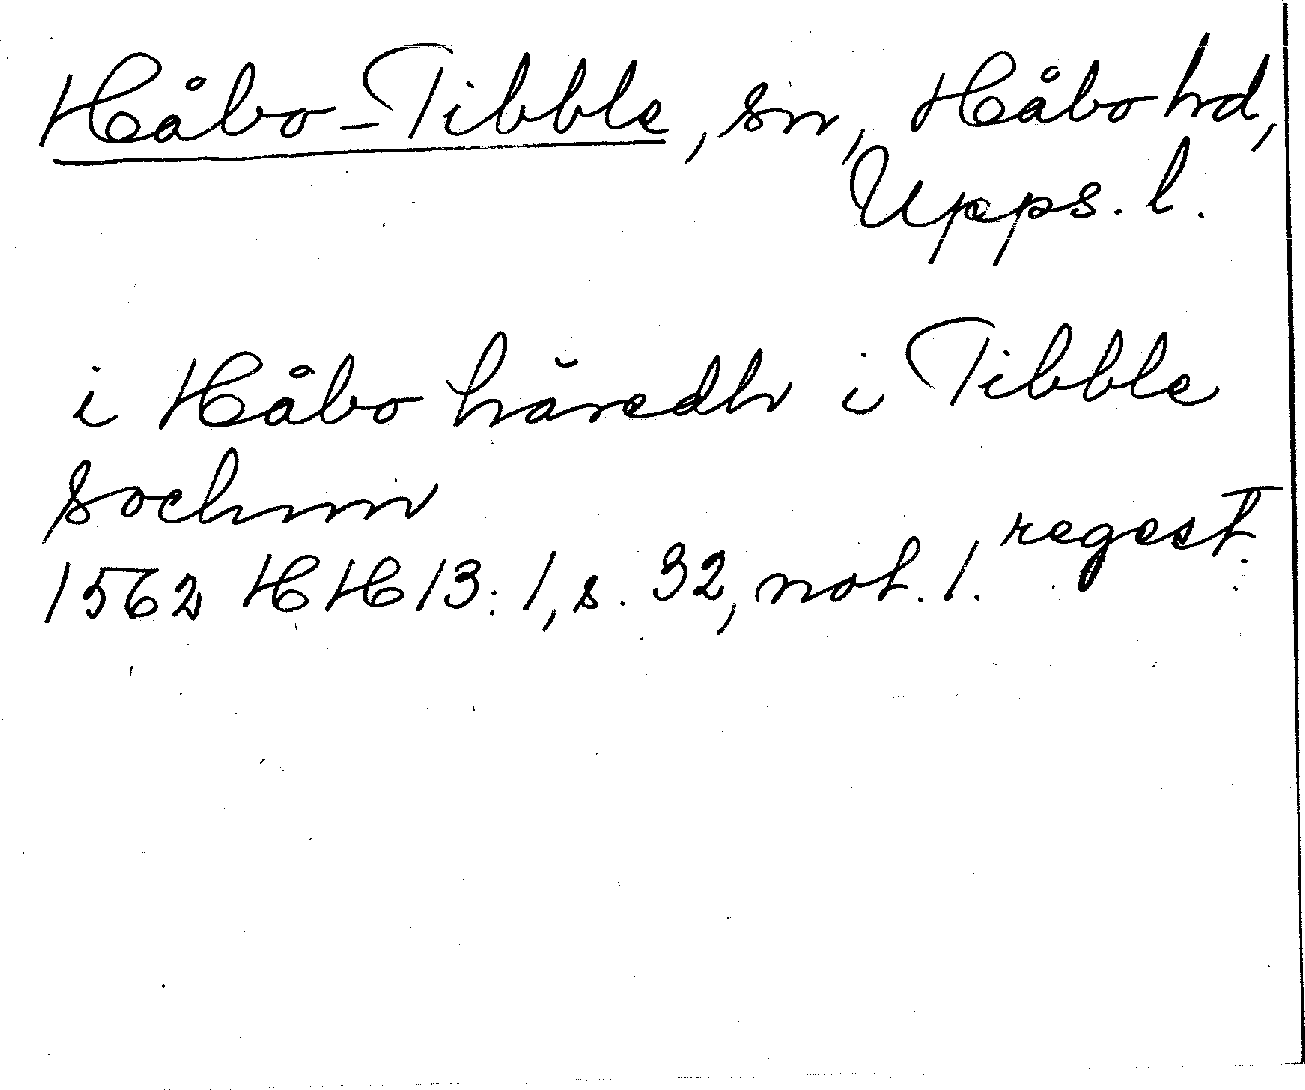 Håbo-Tibble, sn, Håbo hd,
Upps. l.
i Håbo hăredh i Tibble
sochnn
1562 HH 13:1, s. 32, not. 1. regest.